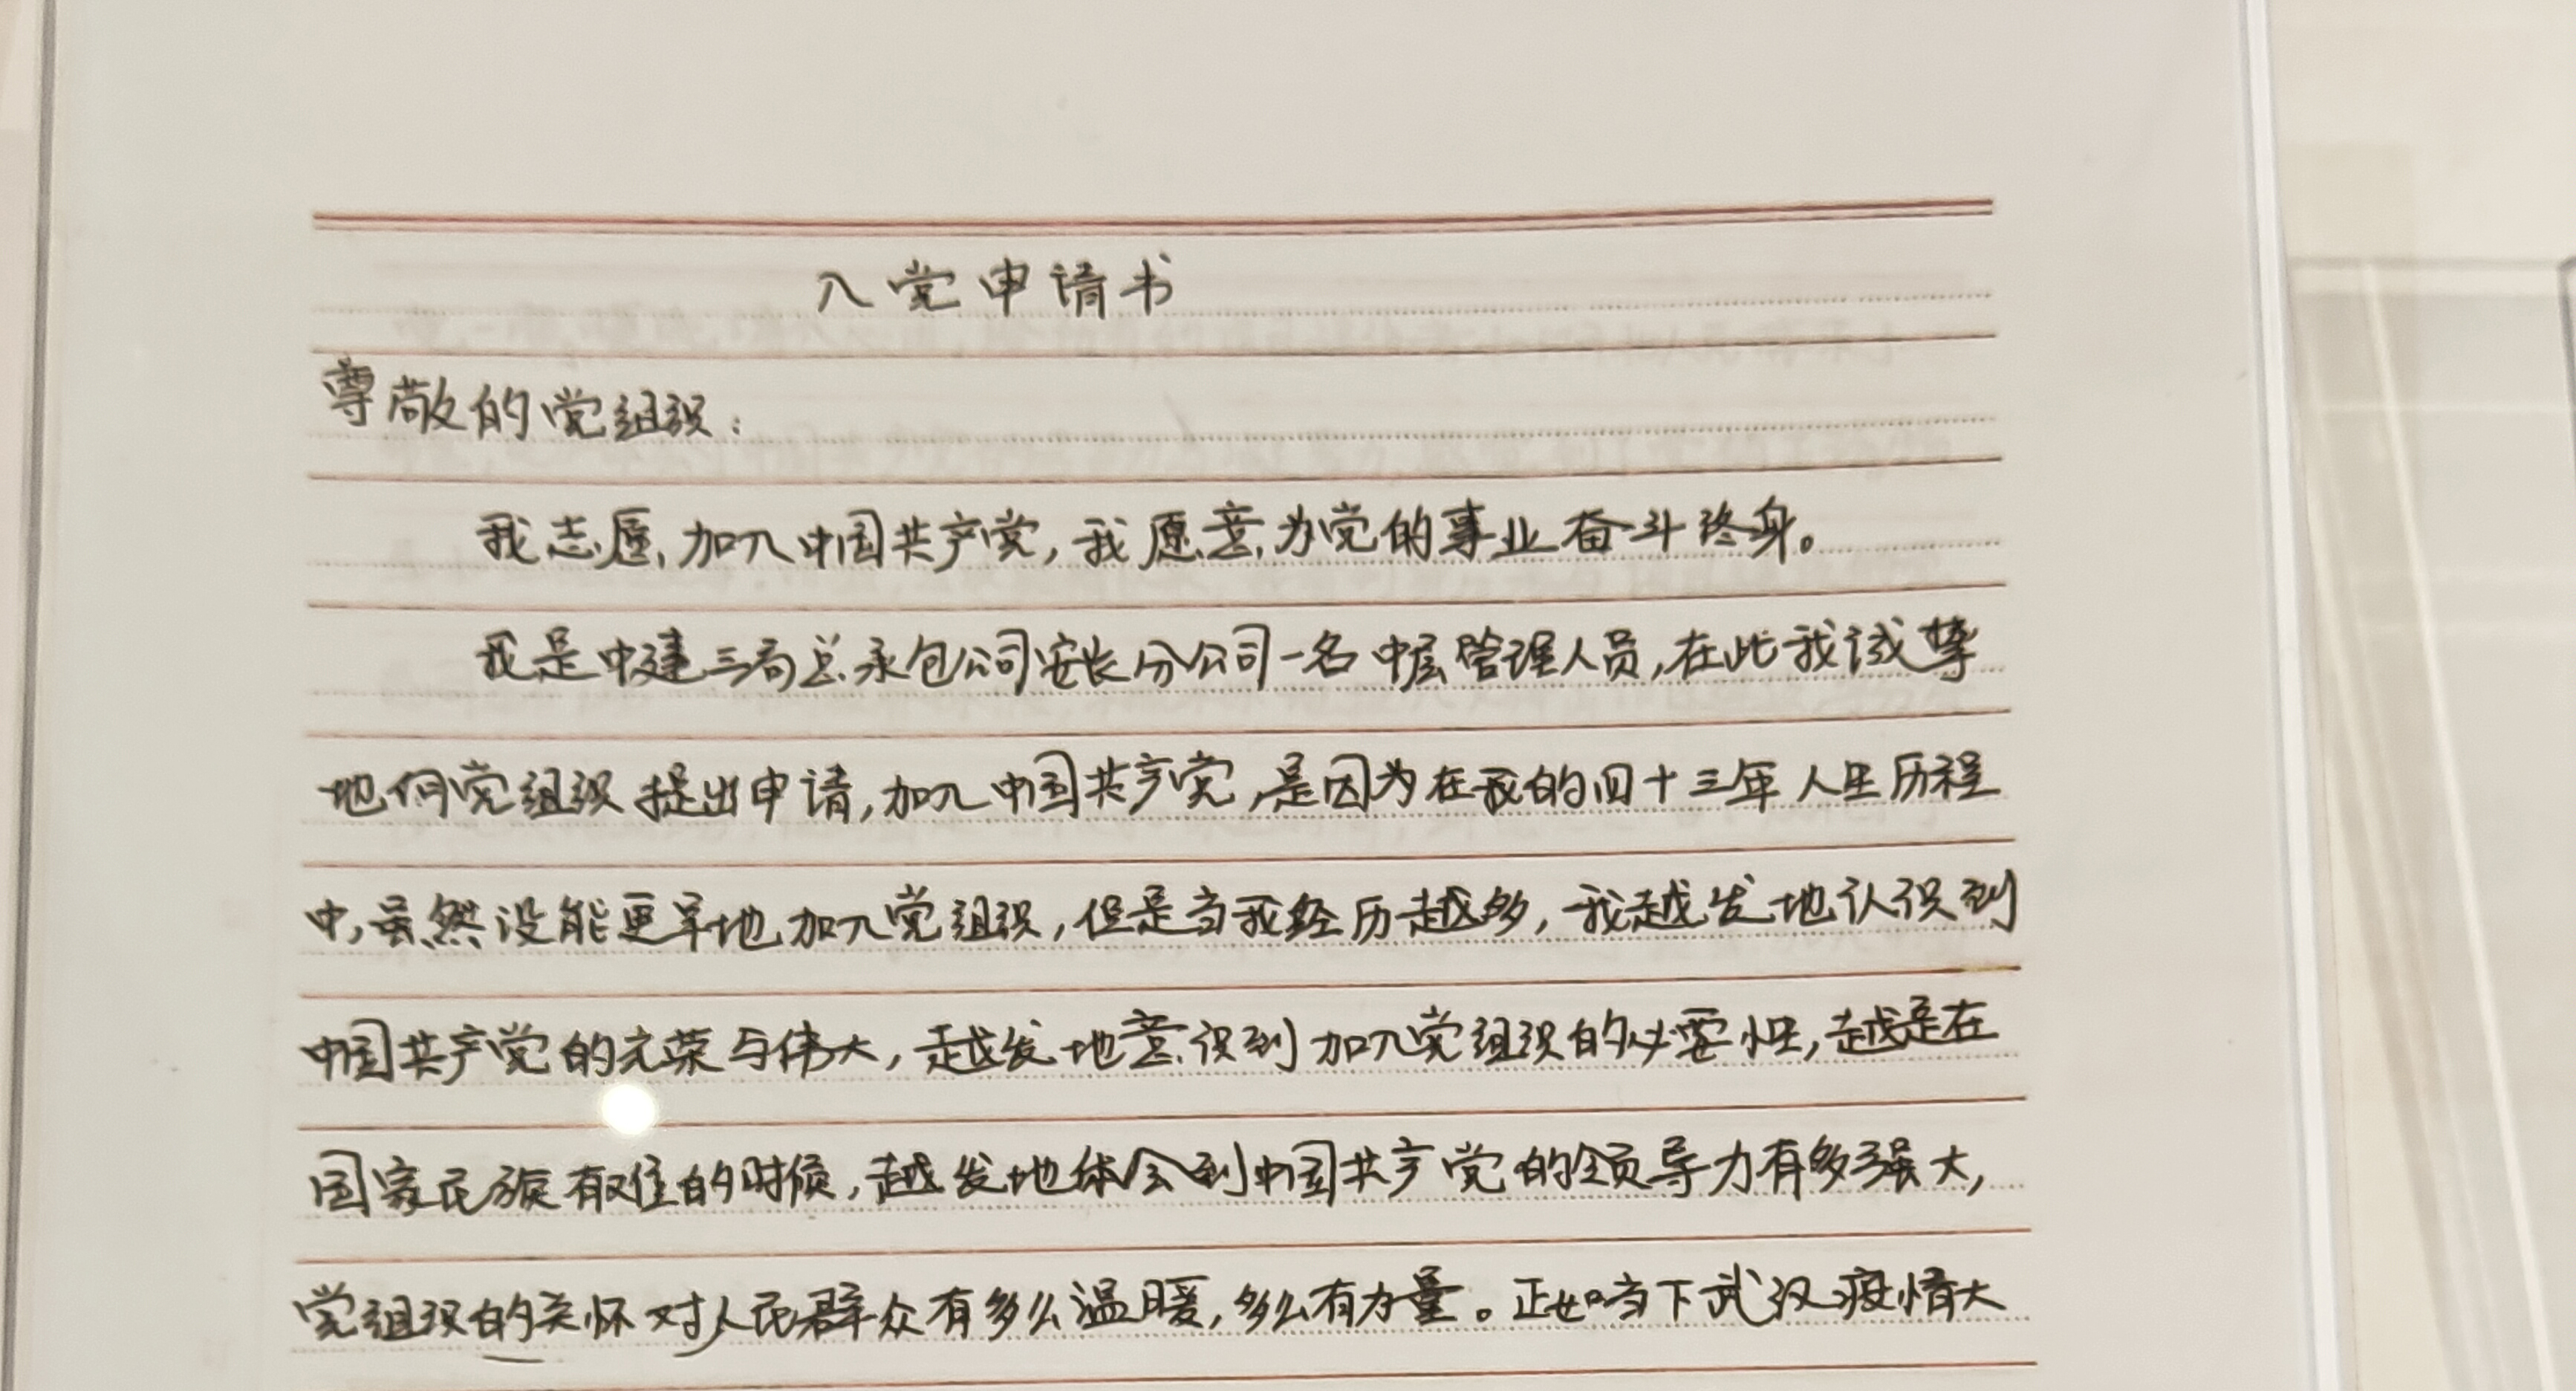 入党申请书
尊敬的党组织：
我志愿加入中国共产党，我愿意为党的事业奋斗终身。
我是中建三局总承包公司安长分公司一名中层管理人员，在此我诚挚
地向党组织提出申请，加入中国共产党，是因为在我的四十三年人生历程
中，虽然没能更早地加入党组织，但是当我经历越多，我越发地认识到
中国共产党的光荣与伟大，越发地意识到加入党组织的必要性，越是在
国家民族有难的时候，越发地体会到中国共产党的领导力有多强大，
党组织的关怀对人民群众有多么温暖，多么有力量。正如当下武汉疫情大